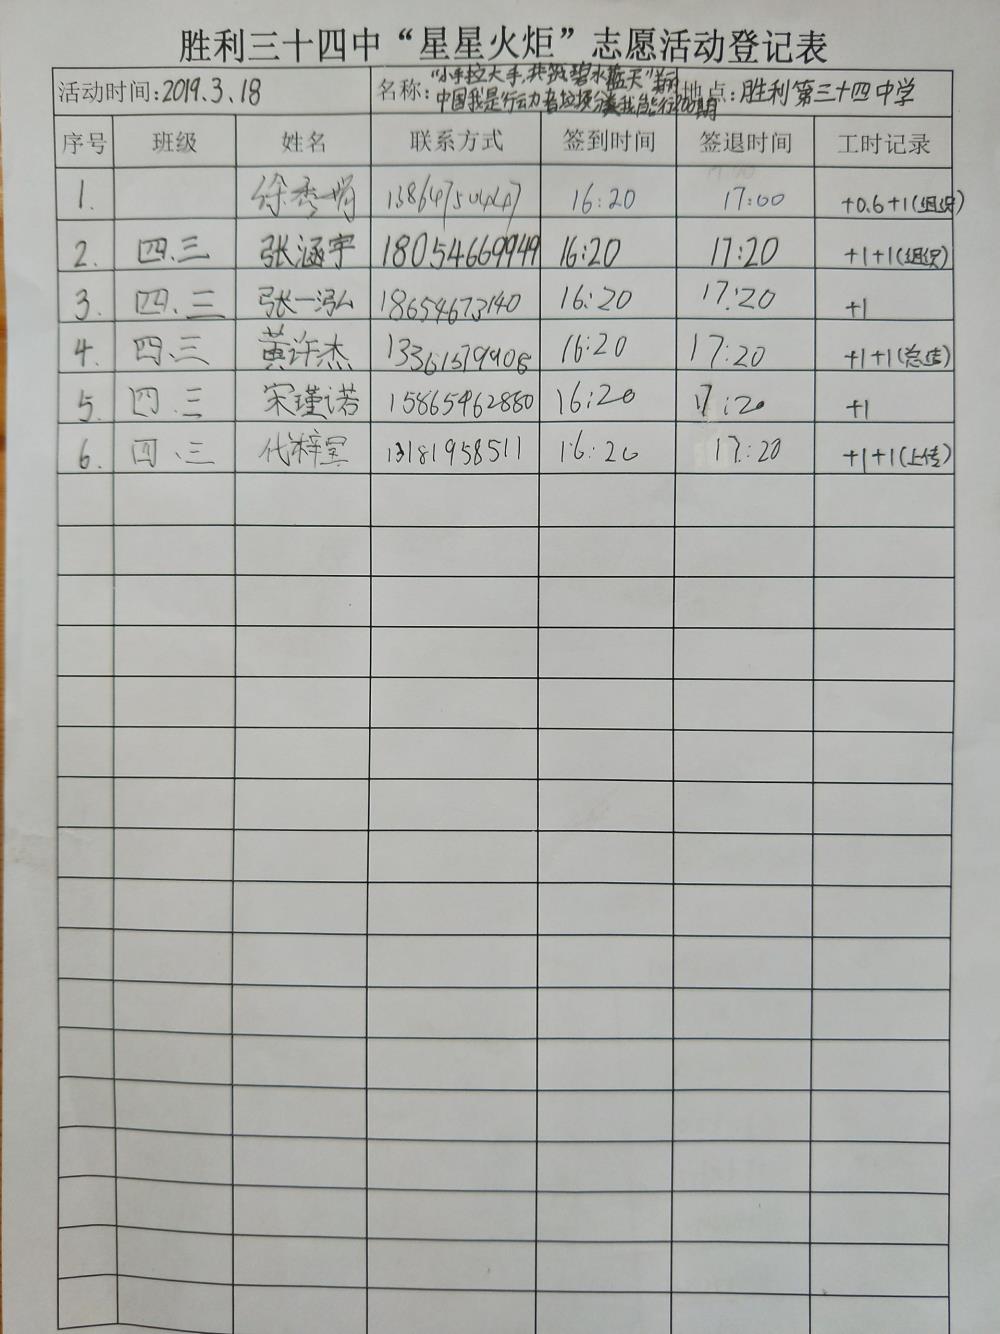 胜利三十四中“星星火炬”志愿活动登记表
活动时间:2019.3.18 名称:“小手拉大手,共筑碧水蓝天” 地点:胜利第三十四中学
中国我是行动力者垃圾分类我能行
序号 班级 姓名 联系方式 签到时间 签退时间 工时记录
1. 徐秀娟 16:20 17:00 +0.6+1(组织)
2. 四.三 张涵宇 18054669949 16:20 17:20 +1+1(组织)
3. 四.三 张一泓 18654673140 16:20 17:20 +1
4. 四.三 黄许杰 16:20 17:20 +1+1(总结)
5. 四.三 宋瑾诺 15865462880 16:20 17:20 +1
6. 四.三 13181958511 16:20 17:20 +1+1(上传)